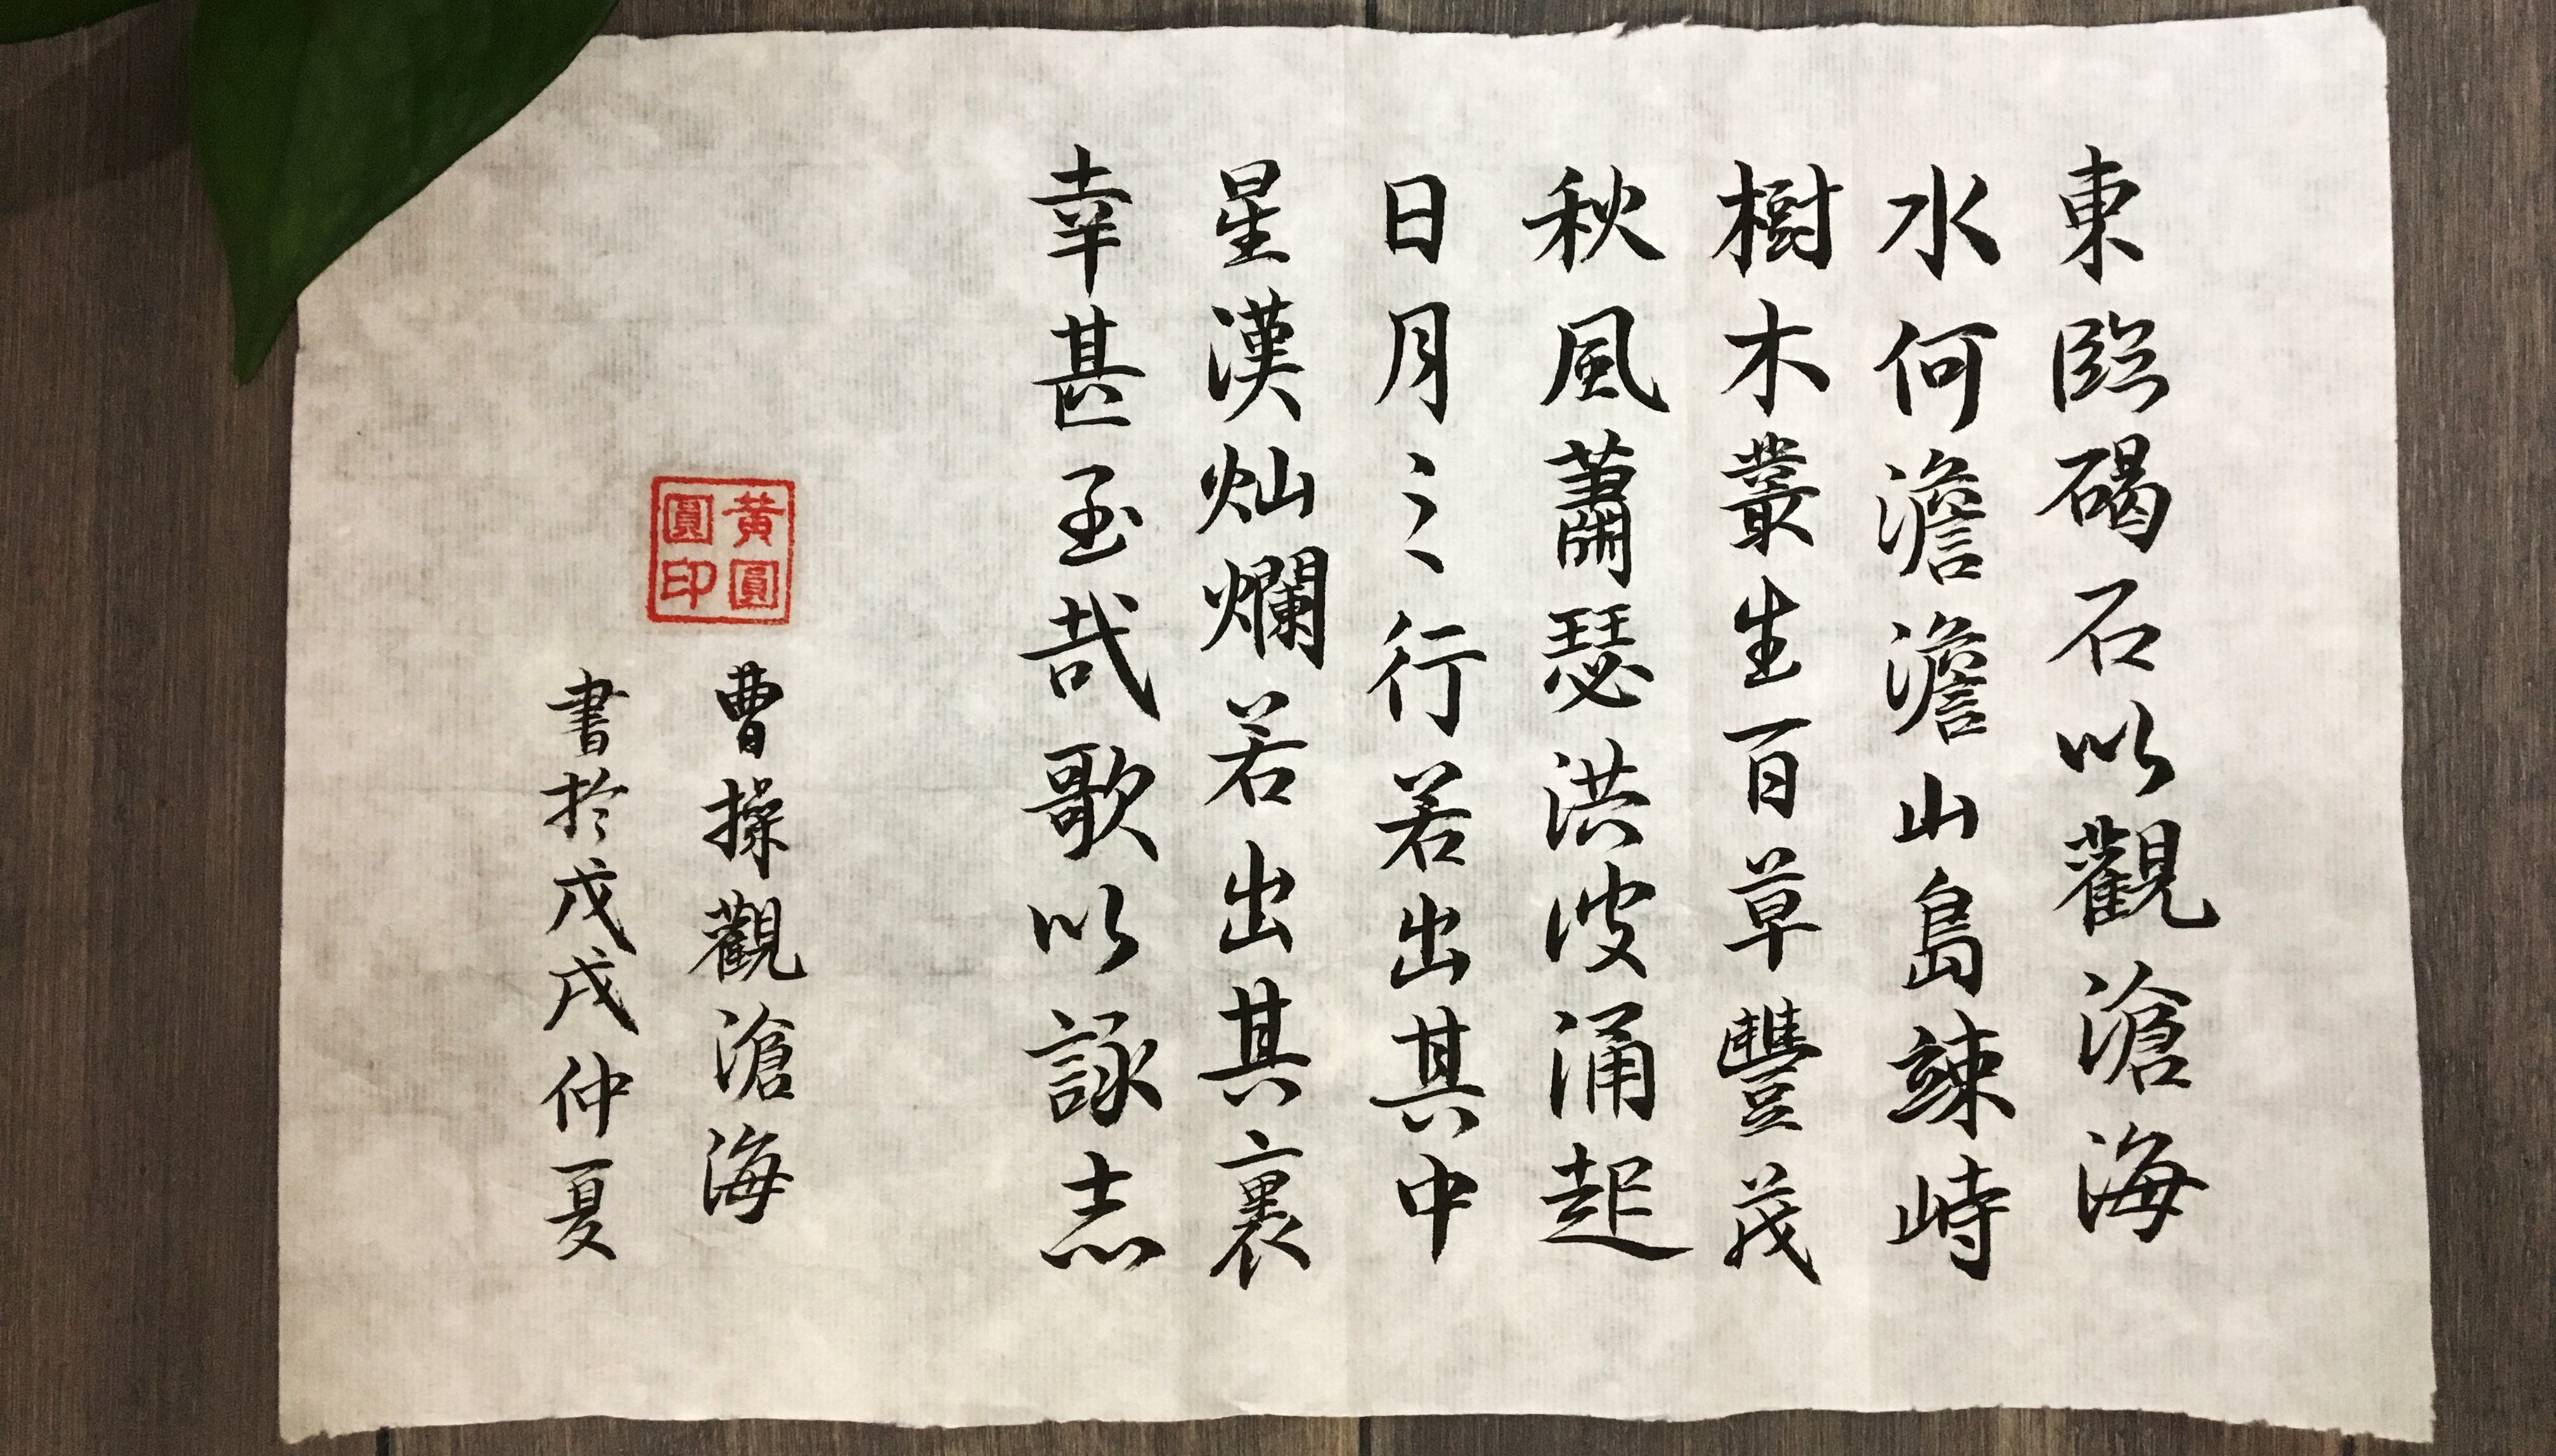 東臨碣石以觀滄海
水何澹澹山島竦峙
樹木叢生百草豐茂
秋風蕭瑟洪波涌起
日月之行若出其中
星漢灿爛若出其裏
幸甚至哉歌以詠志
曹操觀滄海
書於戊戌仲夏
黃圓
圓印